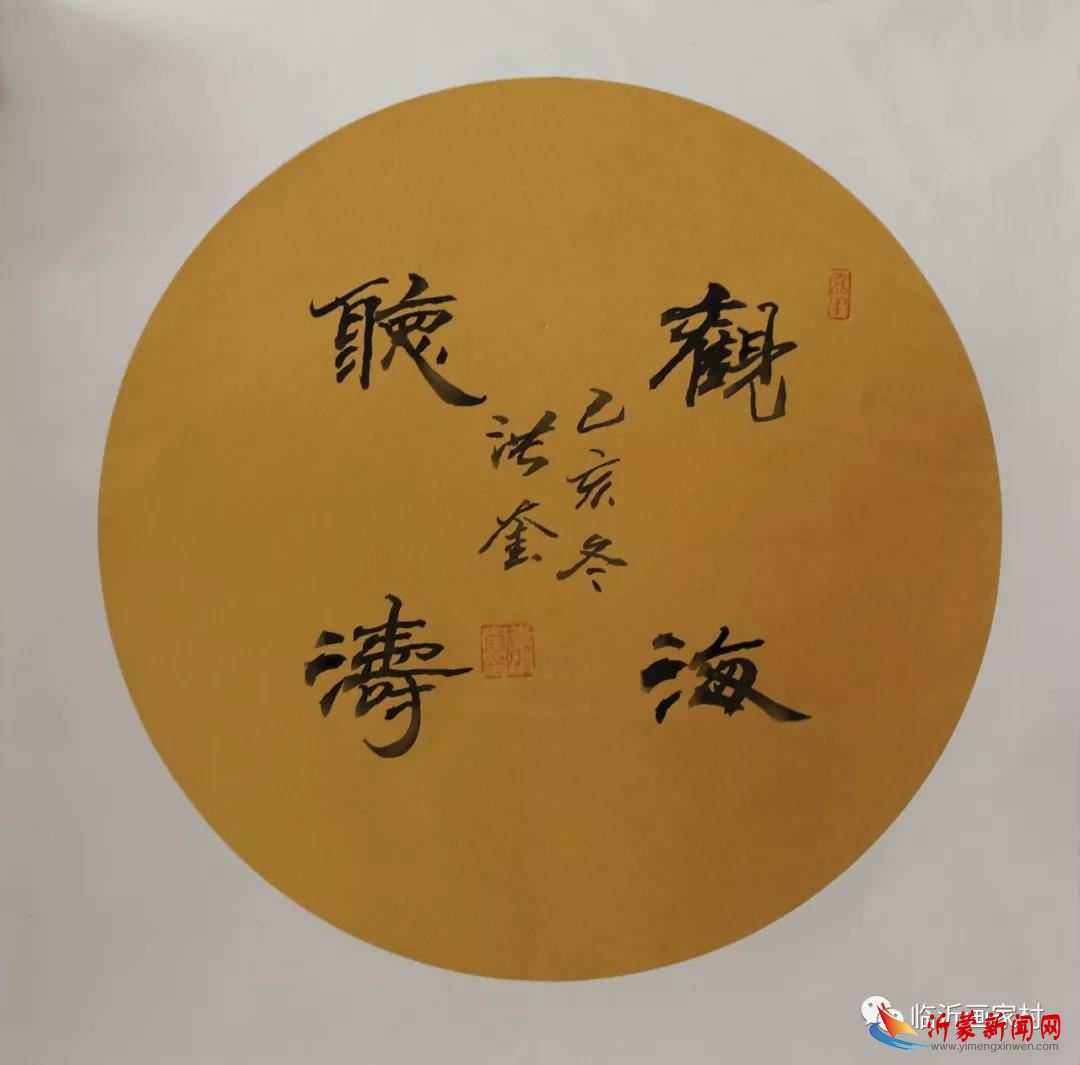 觀海
聽濤
己亥冬
洪奎
临沂画家村
沂蒙新闻网
www.yimengxinwen.com